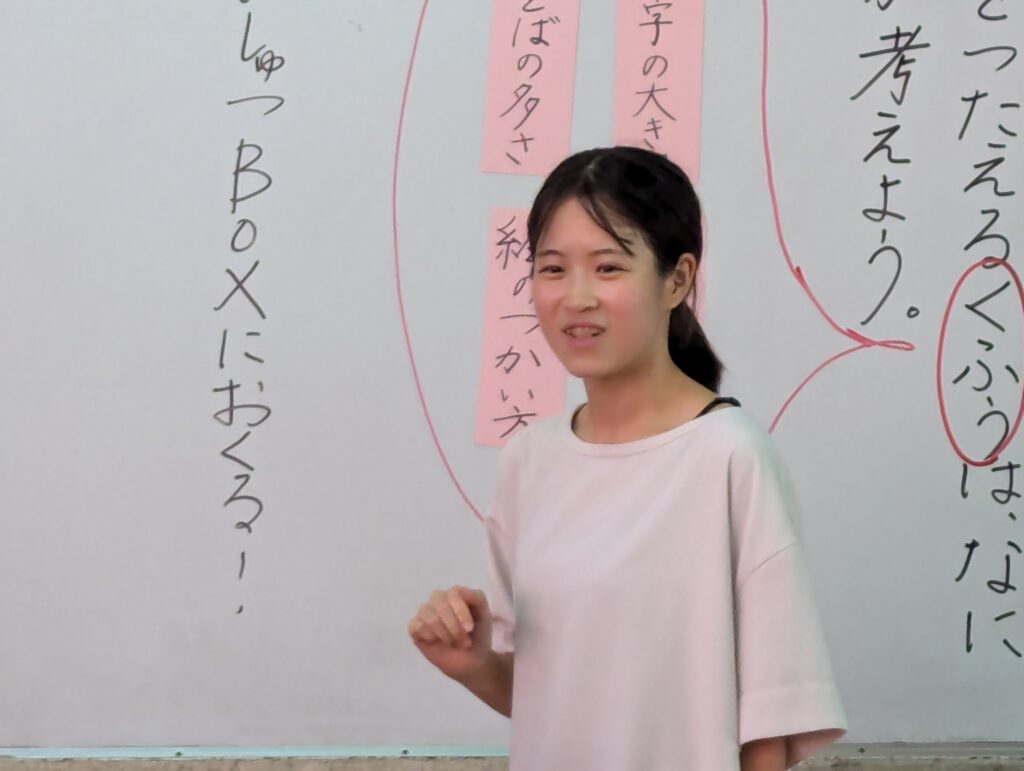 とつたえるくふうは、なに
考えよう。
字の大き
ばの多さ
絵のつかい方
しゅつBOXにおくる!